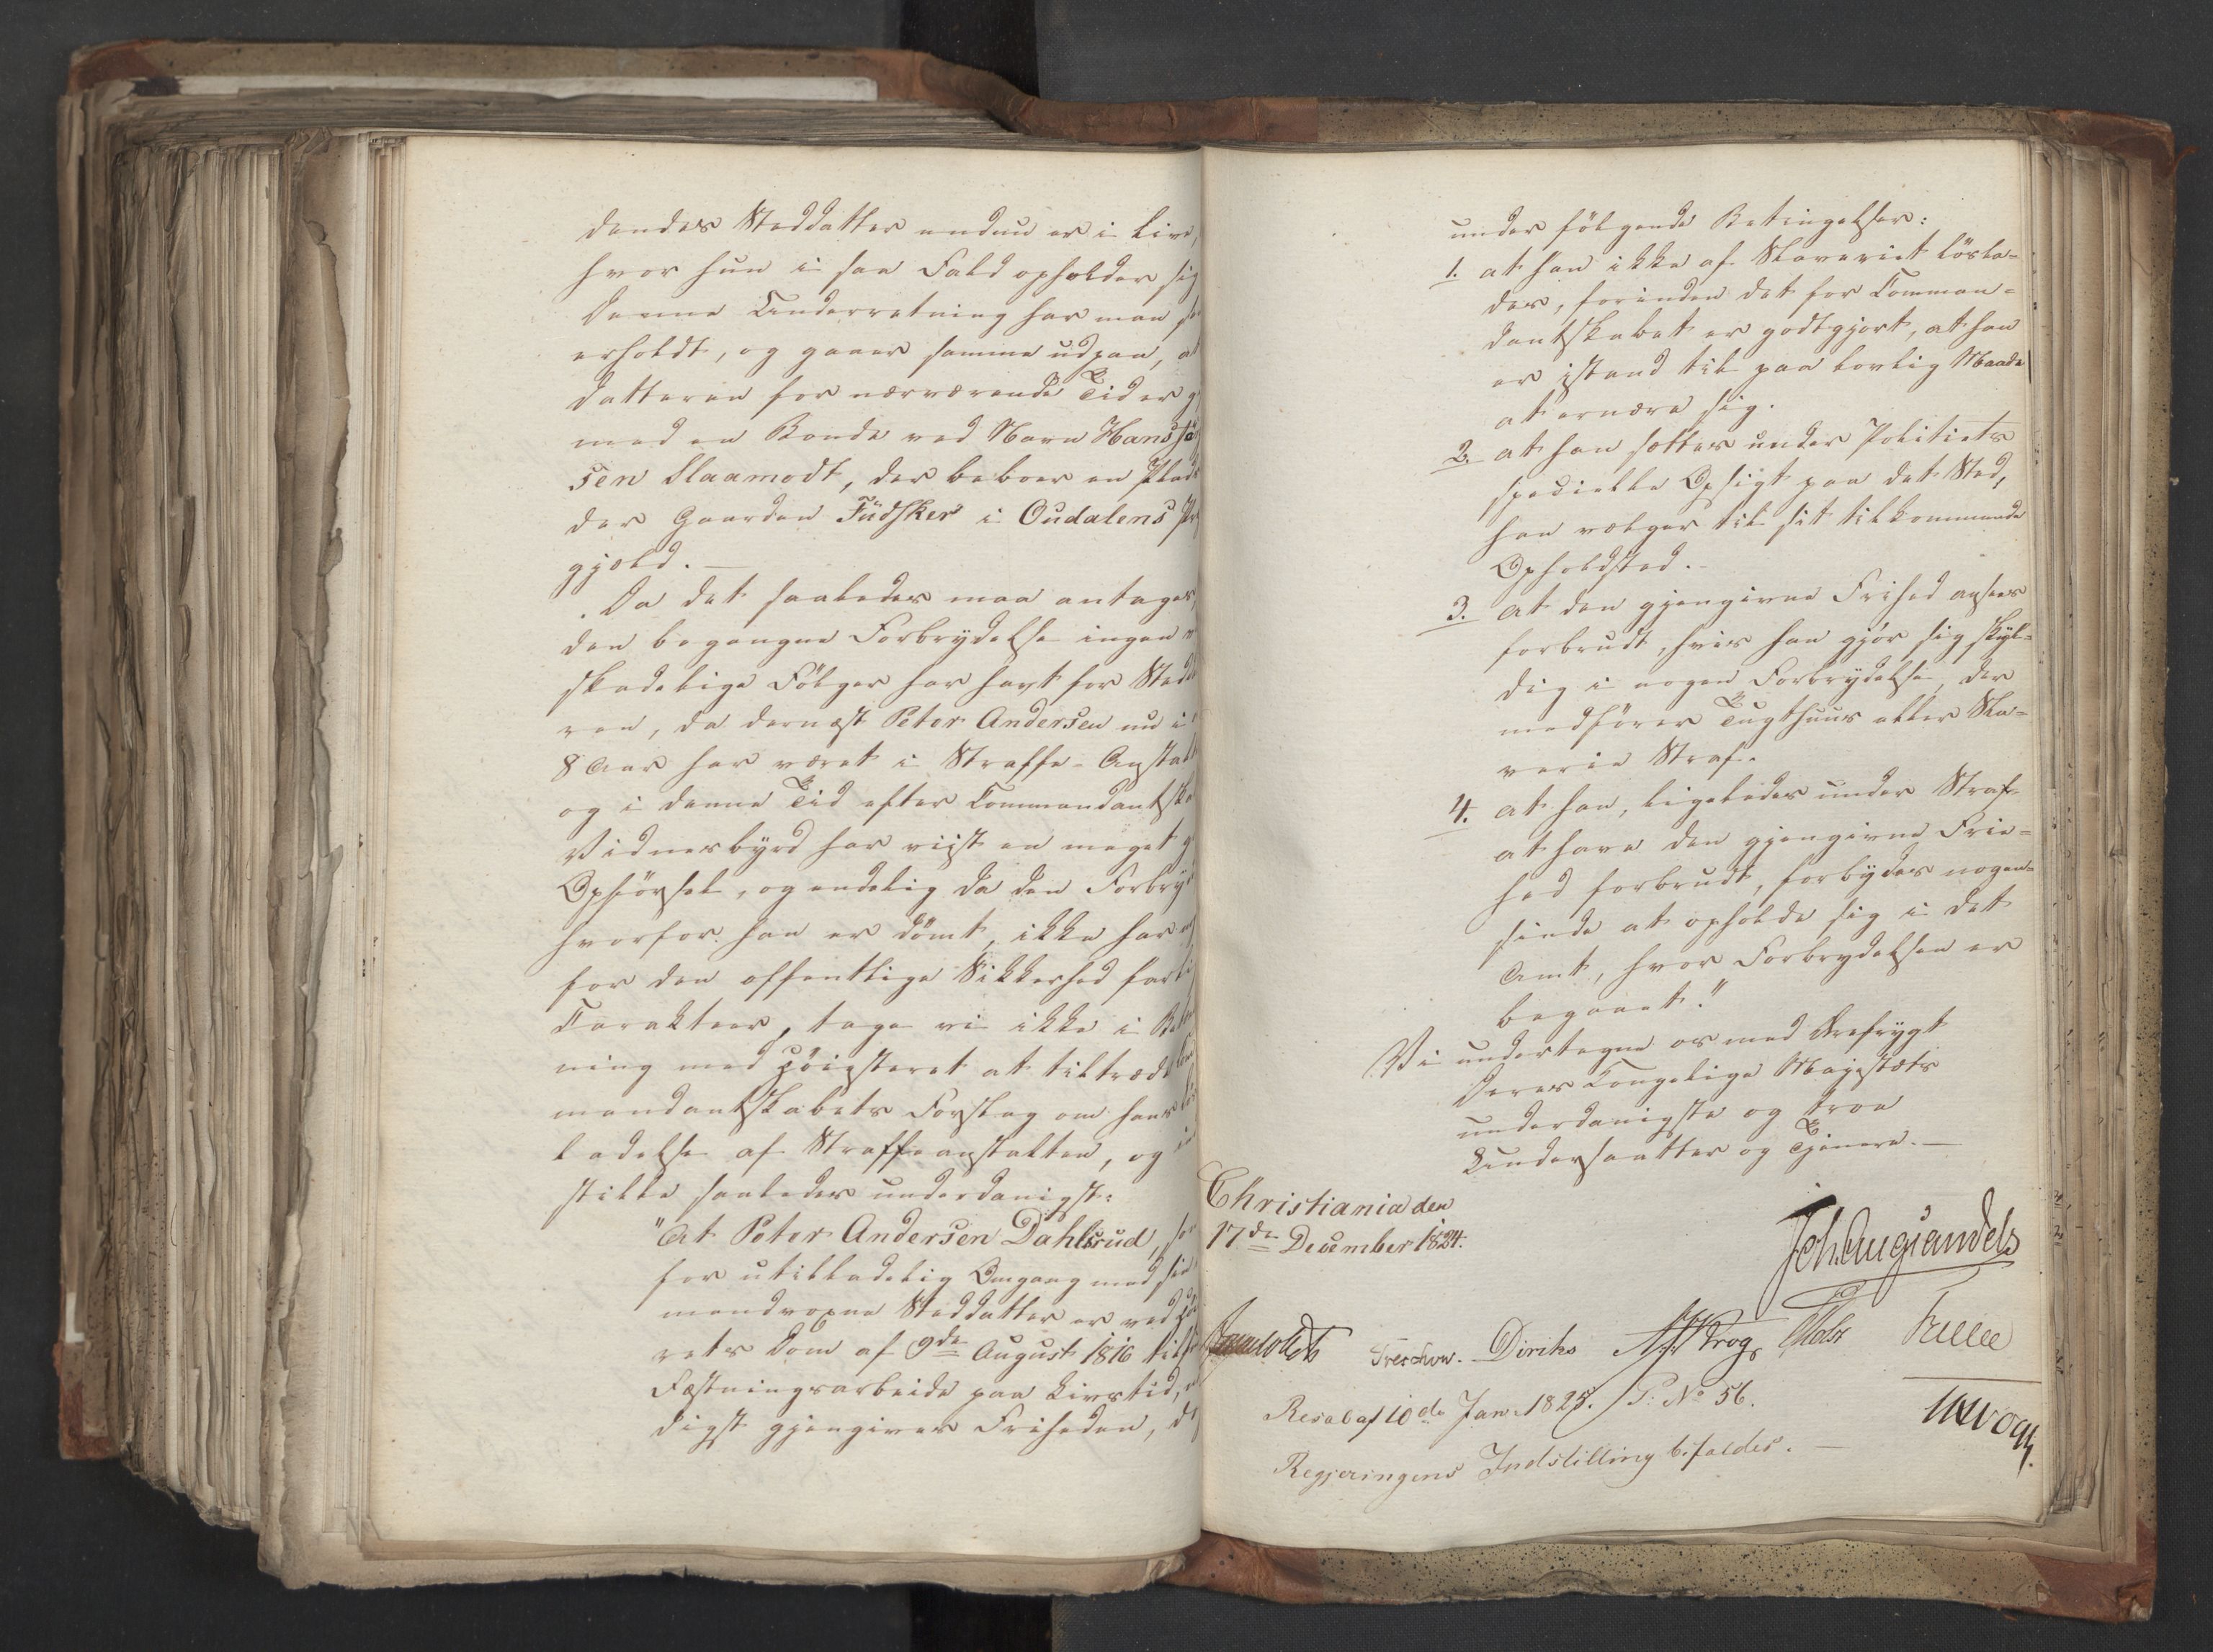 dendes Steddatter endnu er i Live,
hvor hun i saa Fald opholder sig
Denne Underretning har man
erholdt, og gaaer samme ud paa, at
datteren for nærværende Tid er
med en Bonde ved Navn Hans
sen Slaamodt, der beboer en Plads
der Gaarden Füdsker i Oudalens
gjeld. —
Da det saaledes maa antages,
den begangne Forbrydelse ingen
skadelige Fölger har havt for Sted
ren, da dernæst Peter Andersen nu i
8 Aar har været i Straffe-Anstalt
og i denne Tid efter Commandantska
Vidnesbyrd har viist en meget
Opförsel, og endelig da den Forbry
hvorfor han er dömt, ikke har
for den offentlige Sikkerhed farli
Carakteer, tage vi ikke i Be
ning med Höiesteret at tiltræde Com
mandantskabets Forslag om hans Lös
ladelse af Straffeanstalten, og in
stille saaledes underdanigst:
"At Peter Andersen Dahlsrud,
for utilladelig Omgang med sin
mandvoxne Steddatter er ved
rets Dom af 9de August 1816
Fæstningsarbeide paa Livstid,
digst gjengives Friheden,
under fölgende Betingelser:
1. at han ikke af Slaveriet lösla-
des, forinden det for Comman-
dantskabet er godtgjort, at han
er istand til paa lovlig Maade
at ernære sig.
2. at han sættes under Politiets
specielle Opsigt paa det Sted,
han vælger til sit tilkommende
Opholdsted. -
3. at den gjengivne Frihed ansees
forbrudt, hvis han gjör sig skyl-
dig i nogen Forbrydelse, der
medförer Tugthuus eller Sla-
verie Straf.
4. at han, ligeledes under Straf
at have den gjengivne Frie-
hed forbrudt, forbydes nogen-
sinde at opholde sig i det
Amt, hvor Forbrydelsen er
begaaet."
Vi undertegne os med Ærefrygt
Deres Kongelige Majestæts
underdanigste og troe
Undersaatter og Tjenere. —
Christiania den
17de December 1824.
Joh. Aug. Sandels
Treschow. Diriks Krog Motzf
Resol af 10de Jan. 1825. P. No 56.
Regjeringens Indstilling bifaldes. —